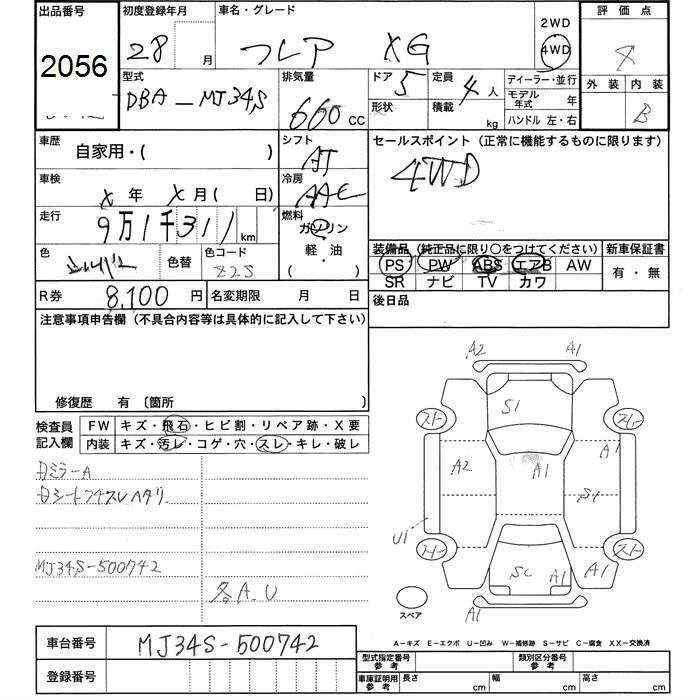 出品番号 初度登録年月 車名・グレード 2WD 評価点
2056 28 月 フレア XG 4WD
外装 内装
型式 排気量 ドア 定員 ディーラー・並行
DBA-MJ34S 660 CC 5 4 人 モデル年式 年
形状 積載 kg ハンドル 左・右 B
車歴 シフト セールスポイント (正常に機能するものに限ります)
自家用・( ) AT 4WD
車検 冷房
X 年 X 月 ( 日) AAC
走行 燃料
9万1千311 km ガソリン
色 色替 色コード 軽・油
( )
装備品 (純正品に限り○をつけてください) 新車保証書
PS PW ABS エアB AW 有・無
SR ナビ TV カワ
R券 8,100 円 名変期限 月 日 後日品
注意事項申告欄 (不具合内容等は具体的に記入して下さい)
修復歴 有 〔箇所 〕
検査員 FW キズ・飛石・ヒビ割・リペア跡・X要
記入欄 内装 キズ・汚レ・コゲ・穴・スレ・キレ・破レ
A2 A1
S1
A2 A1 A1
S1
U1
SC A1 A1
スペア A1
MJ34S-500742
各A.U
A-キズ E-エクボ U-凹み W-補修跡 S-サビ C-腐食 XX-交換済
車台番号 MJ34S-500742
登録番号
型式指定番号 参考 類別区分番号 参考
車庫証明用 参考 長さ cm 幅 cm 高さ cm